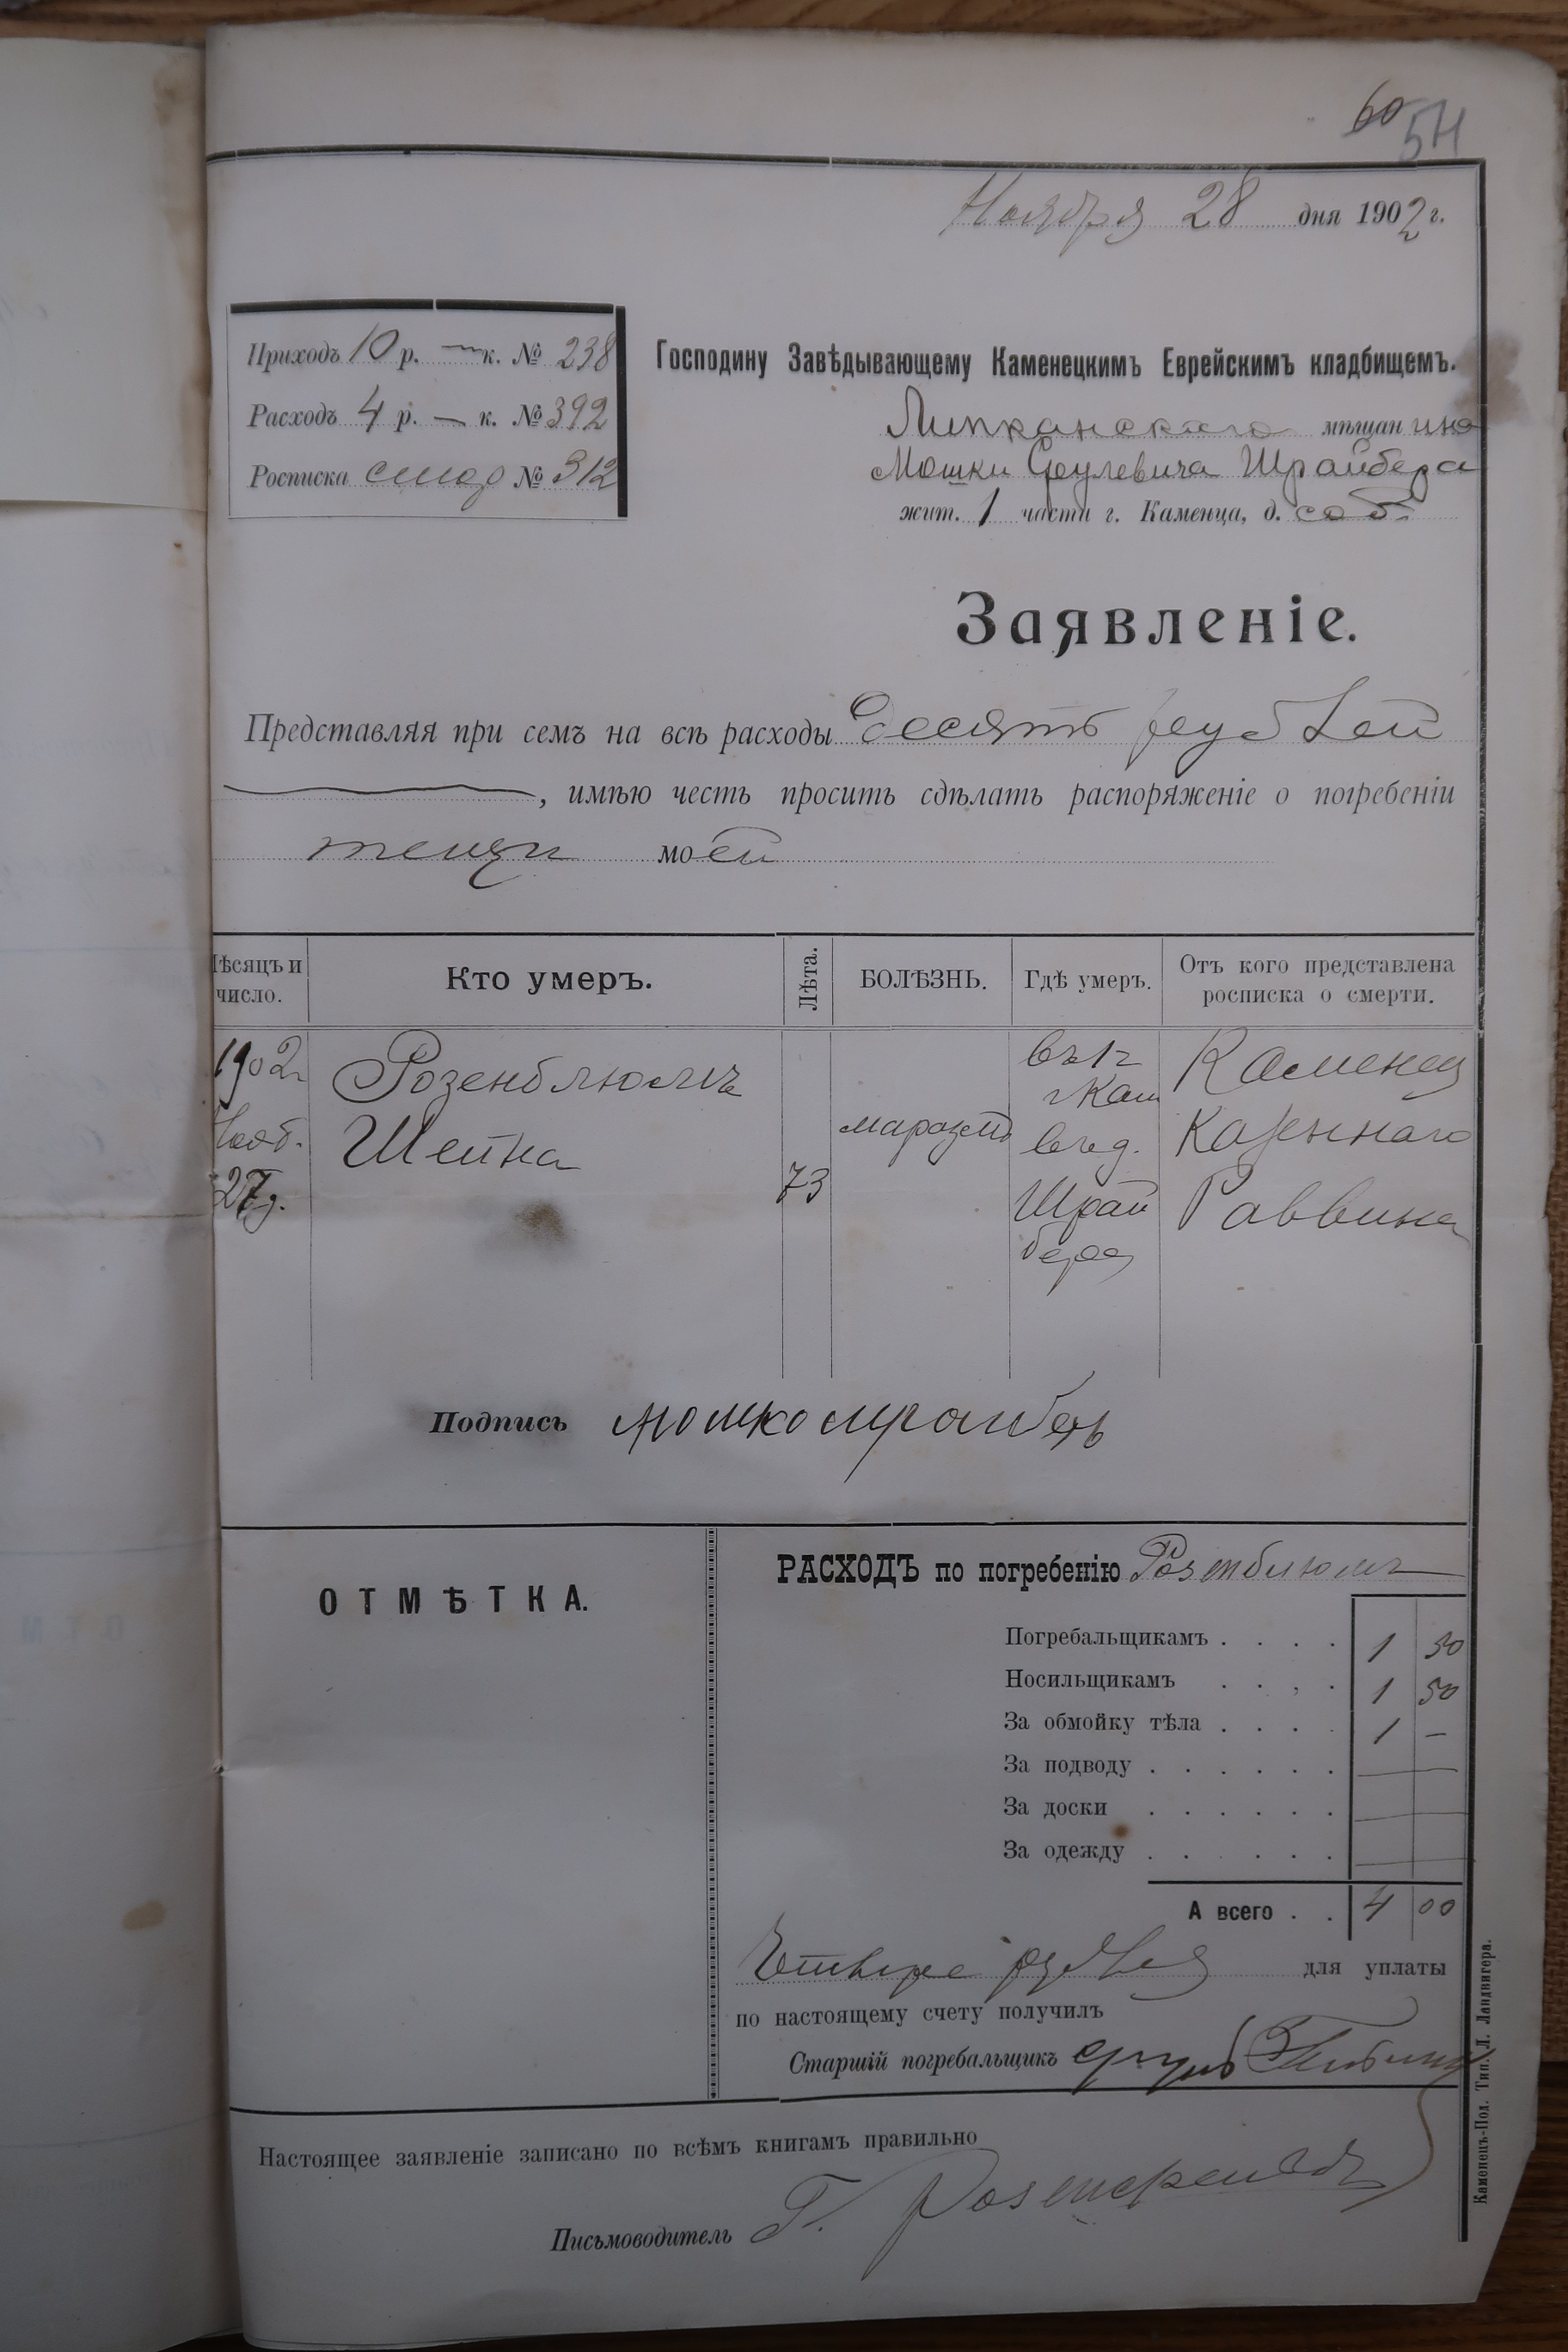 60
54
Ноября 28 дня 1902 г.
Приходъ 10 р. — к. № 238
Расходъ 4 р. — к. № 392
Росписка № 312
Господину Завѣдывающему Каменецкимъ Еврейскимъ кладбищемъ.
Липканскаго мѣщанина
Мошки Срулевича Шрайбера
жит. 1 части г. Каменца, д. соб.
Заявленіе.
Представляя при семъ на всѣ расходы десять рублей
, имѣю честь просить сдѣлать распоряженіе о погребеніи
тещи моей
Мѣсяцъ и число.
Кто умеръ.
Лѣта.
БОЛѢЗНЬ.
Гдѣ умеръ.
Отъ кого представлена росписка о смерти.
1902
Нояб.
27 д.
Розенблюмъ
Шейна
73
маразмъ
г Кам
въ д.
Шрай
бера
Каменец
Казеннаго
Раввина
Подпись Мошко Шрайберъ
ОТМѢТКА.
РАСХОДЪ по погребенію Розенблюмъ
Погребальщикамъ . . . . 1 50
Носильщикамъ . . . . 1 50
За обмойку тѣла . . . . 1 —
За подводу . . . . . . —
За доски . . . . . . —
За одежду . . . . . . —
А всего . . 4 00
Четыре рубля для уплаты
по настоящему счету получилъ
Старшій погребальщикъ
Настоящее заявленіе записано по всѣмъ книгамъ правильно
Письмоводитель Г.
Каменецъ-Под. Тип. Л. Ландвигера.